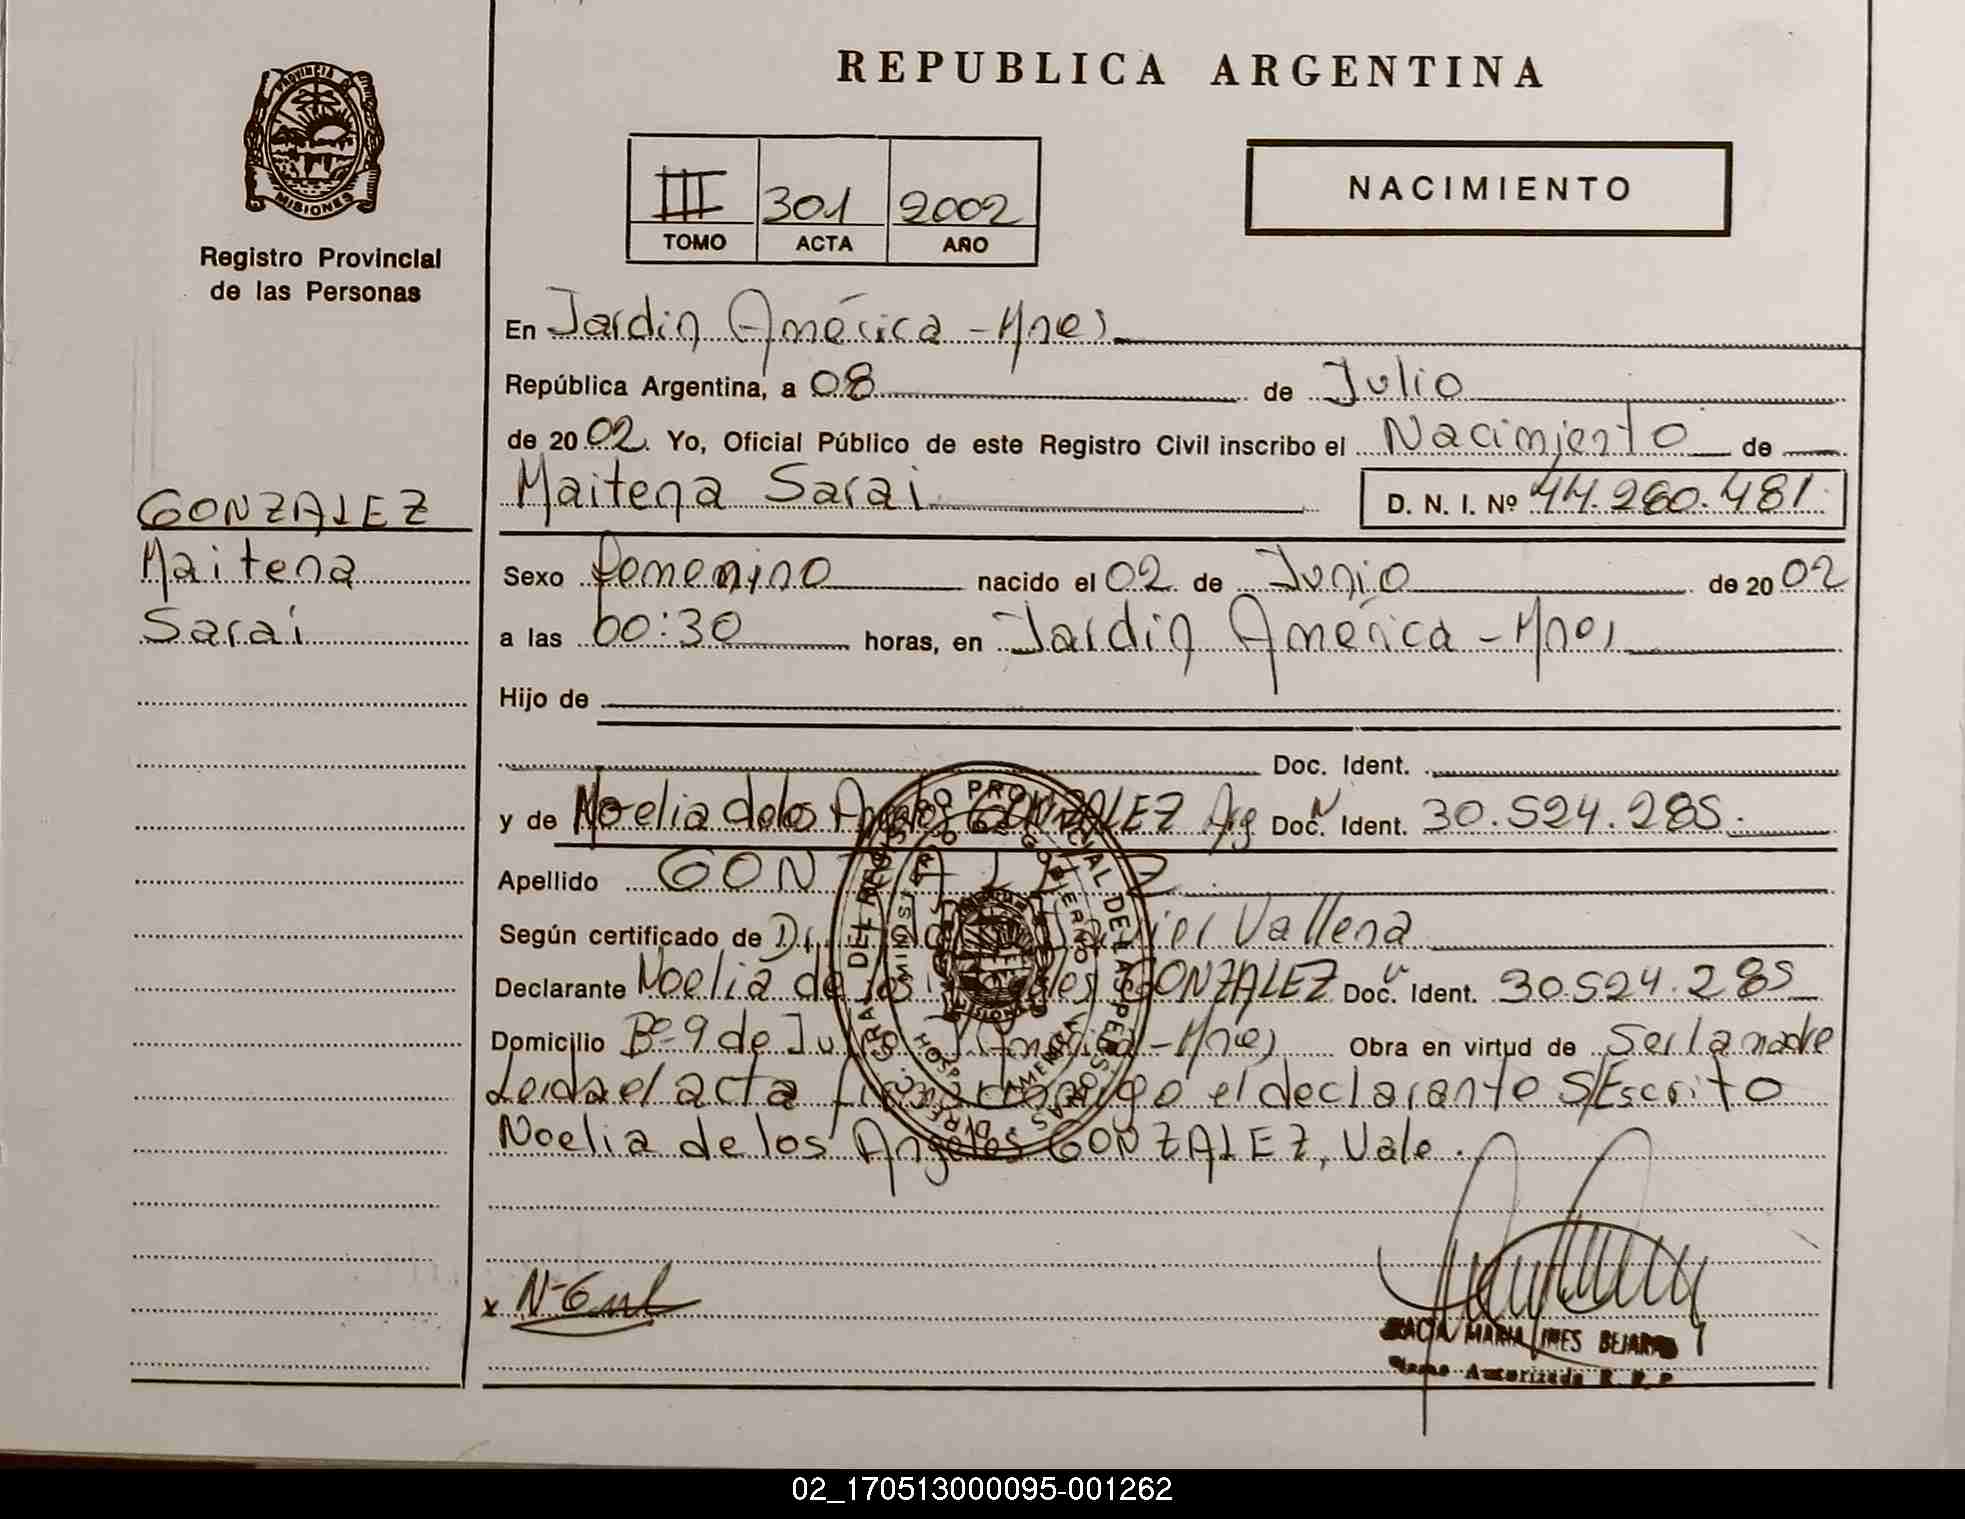 REPUBLICA ARGENTINA
PROVINCIA DE
MISIONES
Registro Provincial
de las Personas
III 301 2002
TOMO ACTA AÑO
NACIMIENTO
En Jardin América - Mnes
República Argentina, a 08 de Julio
de 2002. Yo, Oficial Público de este Registro Civil inscribo el Nacimiento de
Maitena Sarai D. N. I. Nº 44.260.481.
GONZALEZ
Maitena
Sarai
Sexo femenino nacido el 02 de Junio de 2002
a las 00:30 horas, en Jardin América - Mnes
Hijo de
Doc. Ident.
y de Noelia de los Angeles GONZALEZ Arg Doc. N Ident. 30.524.285.
Apellido GONZALEZ
Según certificado de Dr. Javier Vallena
Declarante Noelia de los Angeles GONZALEZ Doc. Ident. 30.524.285
Domicilio Bº 9 de Julio J. América - Mnes Obra en virtud de Ser la madre
Leida el acta firma conmigo el declarante S/Escrito
Noelia de los Angeles GONZALEZ, Vale.
MARIA INES
Autorizada R. P. P.
02_170513000095-001262